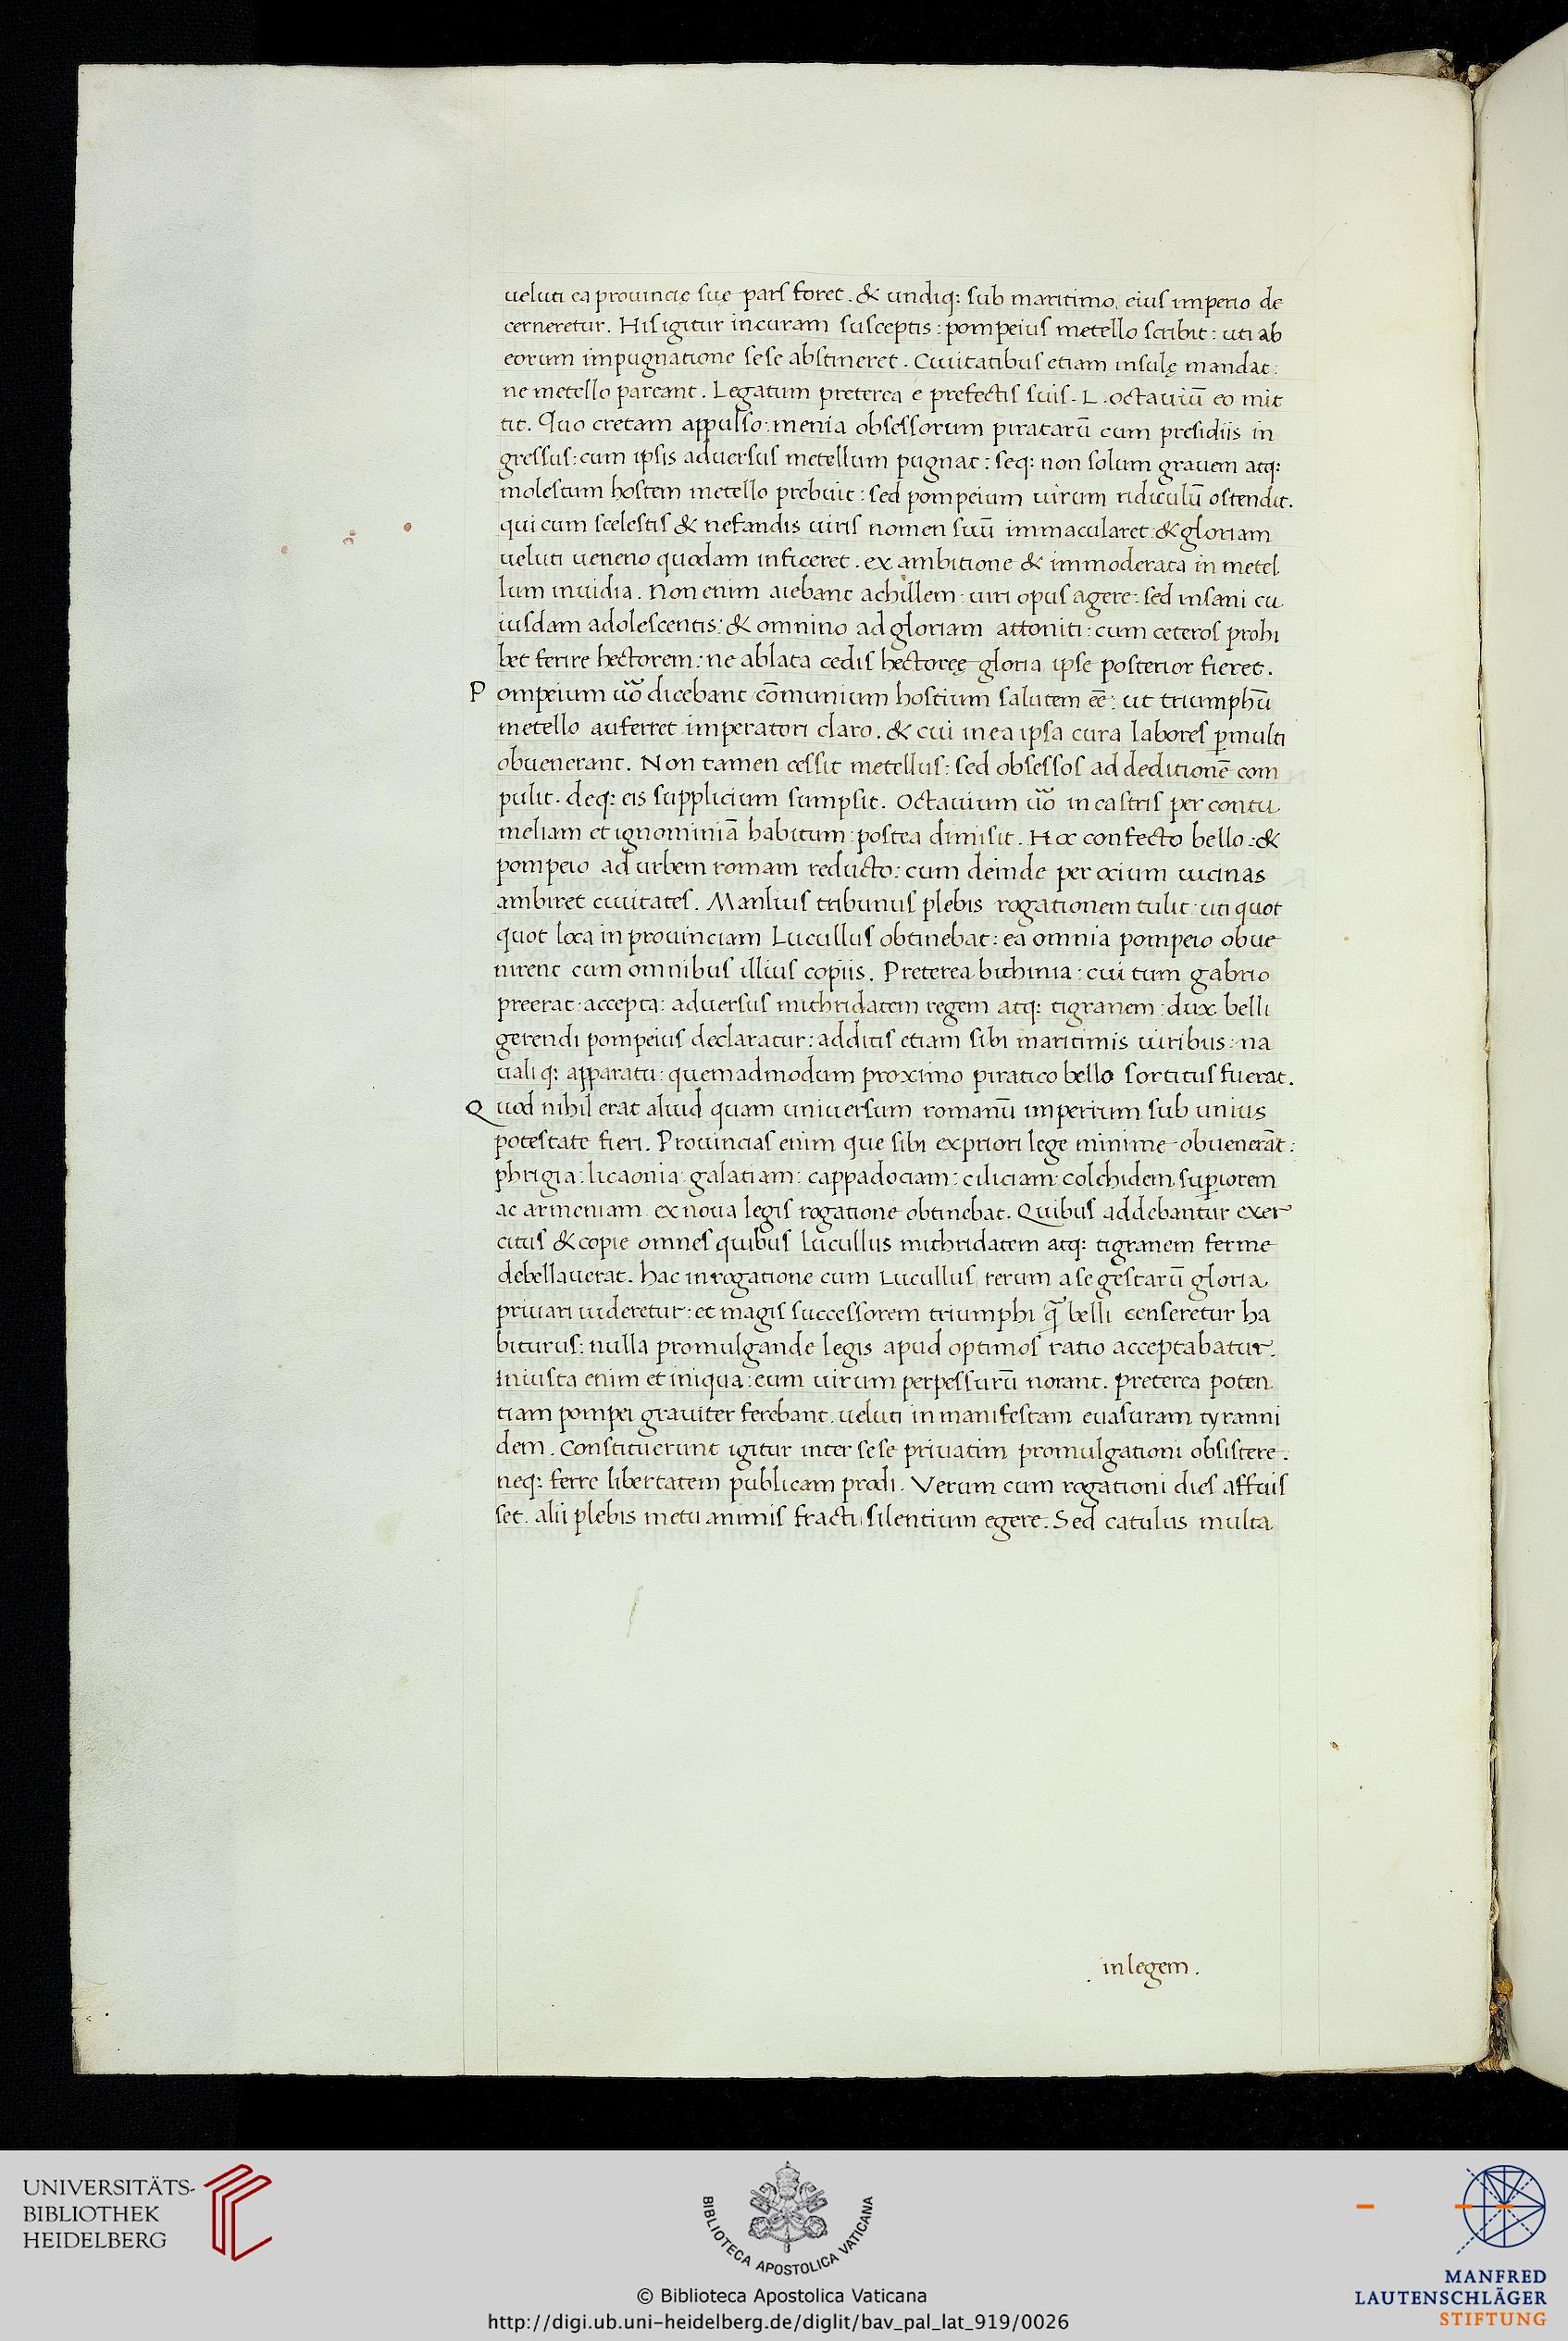 ueluti ea prouincię suę pars foret. & undiq: sub maritimo, eius imperio de
cerneretur. His igitur in curam susceptis: pompeius metello scribit: uti ab
eorum impugnatione sese abstineret. Ciuitatibus etiam insulę mandat:
ne metello pareant. Legatum preterea e prefectis suis. L. octauiū eo mit
tit. Quo cretam appulso: menia obsessorum piratarū cum presidiis in
gressus: cum ipsis aduersus metellum pugnat: seq: non solum grauem atq:
molestum hostem metello prebuit: sed pompeium uirum ridiculū ostendit.
qui cum scelestis & nefandis uiris nomen suū immacularet: & gloriam
ueluti ueneno quodam inficeret. ex ambitione & immoderata in metel
lum inuidia. Non enim aiebant achillem: uiri opus agere: sed insani cu
iusdam adolescentis: & omnino ad gloriam attoniti: cum ceteros prohi
bet ferire hectorem: ne ablata cedis hectoreę gloria ipse posterior fieret.
Pompeium uō dicebant cōmunium hostium salutem eē: ut triumphū
metello auferret imperatori claro. & cui in ea ipsa cura labores ꝑmulti
obuenerant. Non tamen cessit metellus: sed obsessos ad deditionē com
pulit. deq: eis supplicium sumpsit. Octauium uō in castris per contu
meliam et ignominiā habitum: postea dimisit. Hoc confecto bello: &
pompeio ad urbem romam reducto: cum deinde per ocium uicinas
ambiret ciuitates. Manlius tribunus plebis rogationem tulit: uti quot
quot loca in prouinciam Lucullus obtinebat: ea omnia pompeio obue
nirent cum omnibus illius copiis. Preterea bithinia: cui tum gabrio
preerat: accepta: aduersus mithridatem regem atq: tigranem: dux belli
gerendi pompeius declaratur: additis etiam sibi maritimis uiribus: na
uali q: apparatu: quemadmodum proximo piratico bello sortitus fuerat.
Quod nihil erat aliud quam uniuersum romanū imperium sub unius
potestate fieri. Prouincias enim que sibi ex priori lege minime obuenerāt:
phrigia: licaonia: galatiam: cappadociam: ciliciam: colchidem suꝑiorem
ac armeniam ex noua legis rogatione obtinebat. Quibus addebantur exer
citus & copie omnes quibus lucullus mithridatem atq: tigranem ferme
debellauerat. hac in rogatione cum Lucullus, rerum a se gestarū gloria
priuari uideretur: et magis successorem triumphi q̄ belli censeretur ha
biturus: nulla promulgande legis apud optimos ratio acceptabatur.
Iniusta enim et iniqua: eum uirum perpessurū norant. preterea poten
tiam pompei grauiter ferebant. ueluti in manifestam euasuram tyranni
dem. Constituerunt igitur inter sese priuatim promulgationi obsistere:
neq: ferre libertatem publicam prodi. Verum cum rogationi dies affuis
set. alii plebis metu animis fracti, silentium egere. Sed catulus multa
. in legem .
UNIVERSITÄTS-
BIBLIOTHEK
HEIDELBERG
BIBLIOTECA APOSTOLICA VATICANA
© Biblioteca Apostolica Vaticana
http://digi.ub.uni-heidelberg.de/diglit/bav_pal_lat_919/0026
MANFRED
LAUTENSCHLÄGER
STIFTUNG